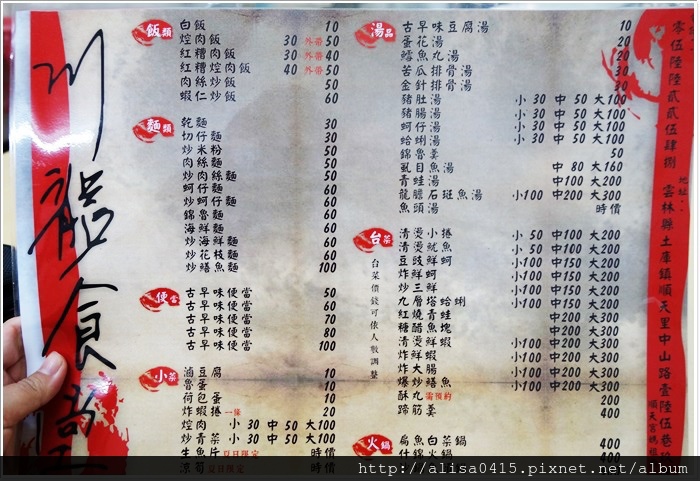 川龍食塾
飯類
白飯 10
焢肉飯 30 外帶 50
紅糟肉飯 30 外帶 40
紅糟焢肉飯 40 外帶 50
肉絲炒飯 50
蝦仁炒飯 60
麵類
乾麵 30
切仔麵 30
炒米粉 50
肉絲麵 50
炒肉絲麵 50
蚵仔麵 60
炒蚵仔麵 60
錦魯麵 60
海鮮麵 60
炒海鮮麵 60
炒花枝麵 60
炒鱔魚麵 100
便當
古早味便當 50
古早味便當 60
古早味便當 70
古早味便當 80
古早味便當 100
小菜
滷豆腐 10
魯蛋 10
荷包蛋 10
炸蝦捲 一條 20
焢肉 小 30 中 50 大100
炒青菜 小 30 中 50 大100
生魚片 夏日限定 時價
涼筍 夏日限定 時價
湯品
古早味豆腐湯 10
蛋花湯 20
鱈魚丸湯 20
苦瓜排骨湯 30
金針排骨湯 30
豬肚湯 小 30 中 50 大100
豬腸湯 小 30 中 50 大100
蚵仔湯 小 30 中 50 大100
蛤蜊湯 小 30 中 50 大100
錦魯羹 50
虱目魚湯 中 80 大160
青蛙湯 中100 大200
龍膽石斑魚湯 小100 中200 大300
魚頭湯 時價
台菜
台菜價錢可依人數調整
清燙小捲 小 50 中100 大200
清燙魷魚 小 50 中100 大200
豆豉鮮蚵 小100 中150 大200
炸鮮蚵 小100 中150 大200
炒三層 小100 中150 大200
九層塔蛤蜊 小100 中150 大200
紅燒青蛙 中200 大300
糖醋魚塊 中200 大300
清燙鮮蝦 小100 中200 大300
炸鮮蝦 小100 中200 大300
炸大腸 小100 中200 大300
爆炒鱔魚 小100 中200 大300
酥丸 需預約 200
蹄筋羹 400
火鍋
扁魚白菜鍋 400
400
零伍陸陸貳貳伍肆捌
地址：雲林縣土庫鎮順天里中山路壹陸伍巷
順天宮媽祖
http://alisa0415.pixnet.net/album